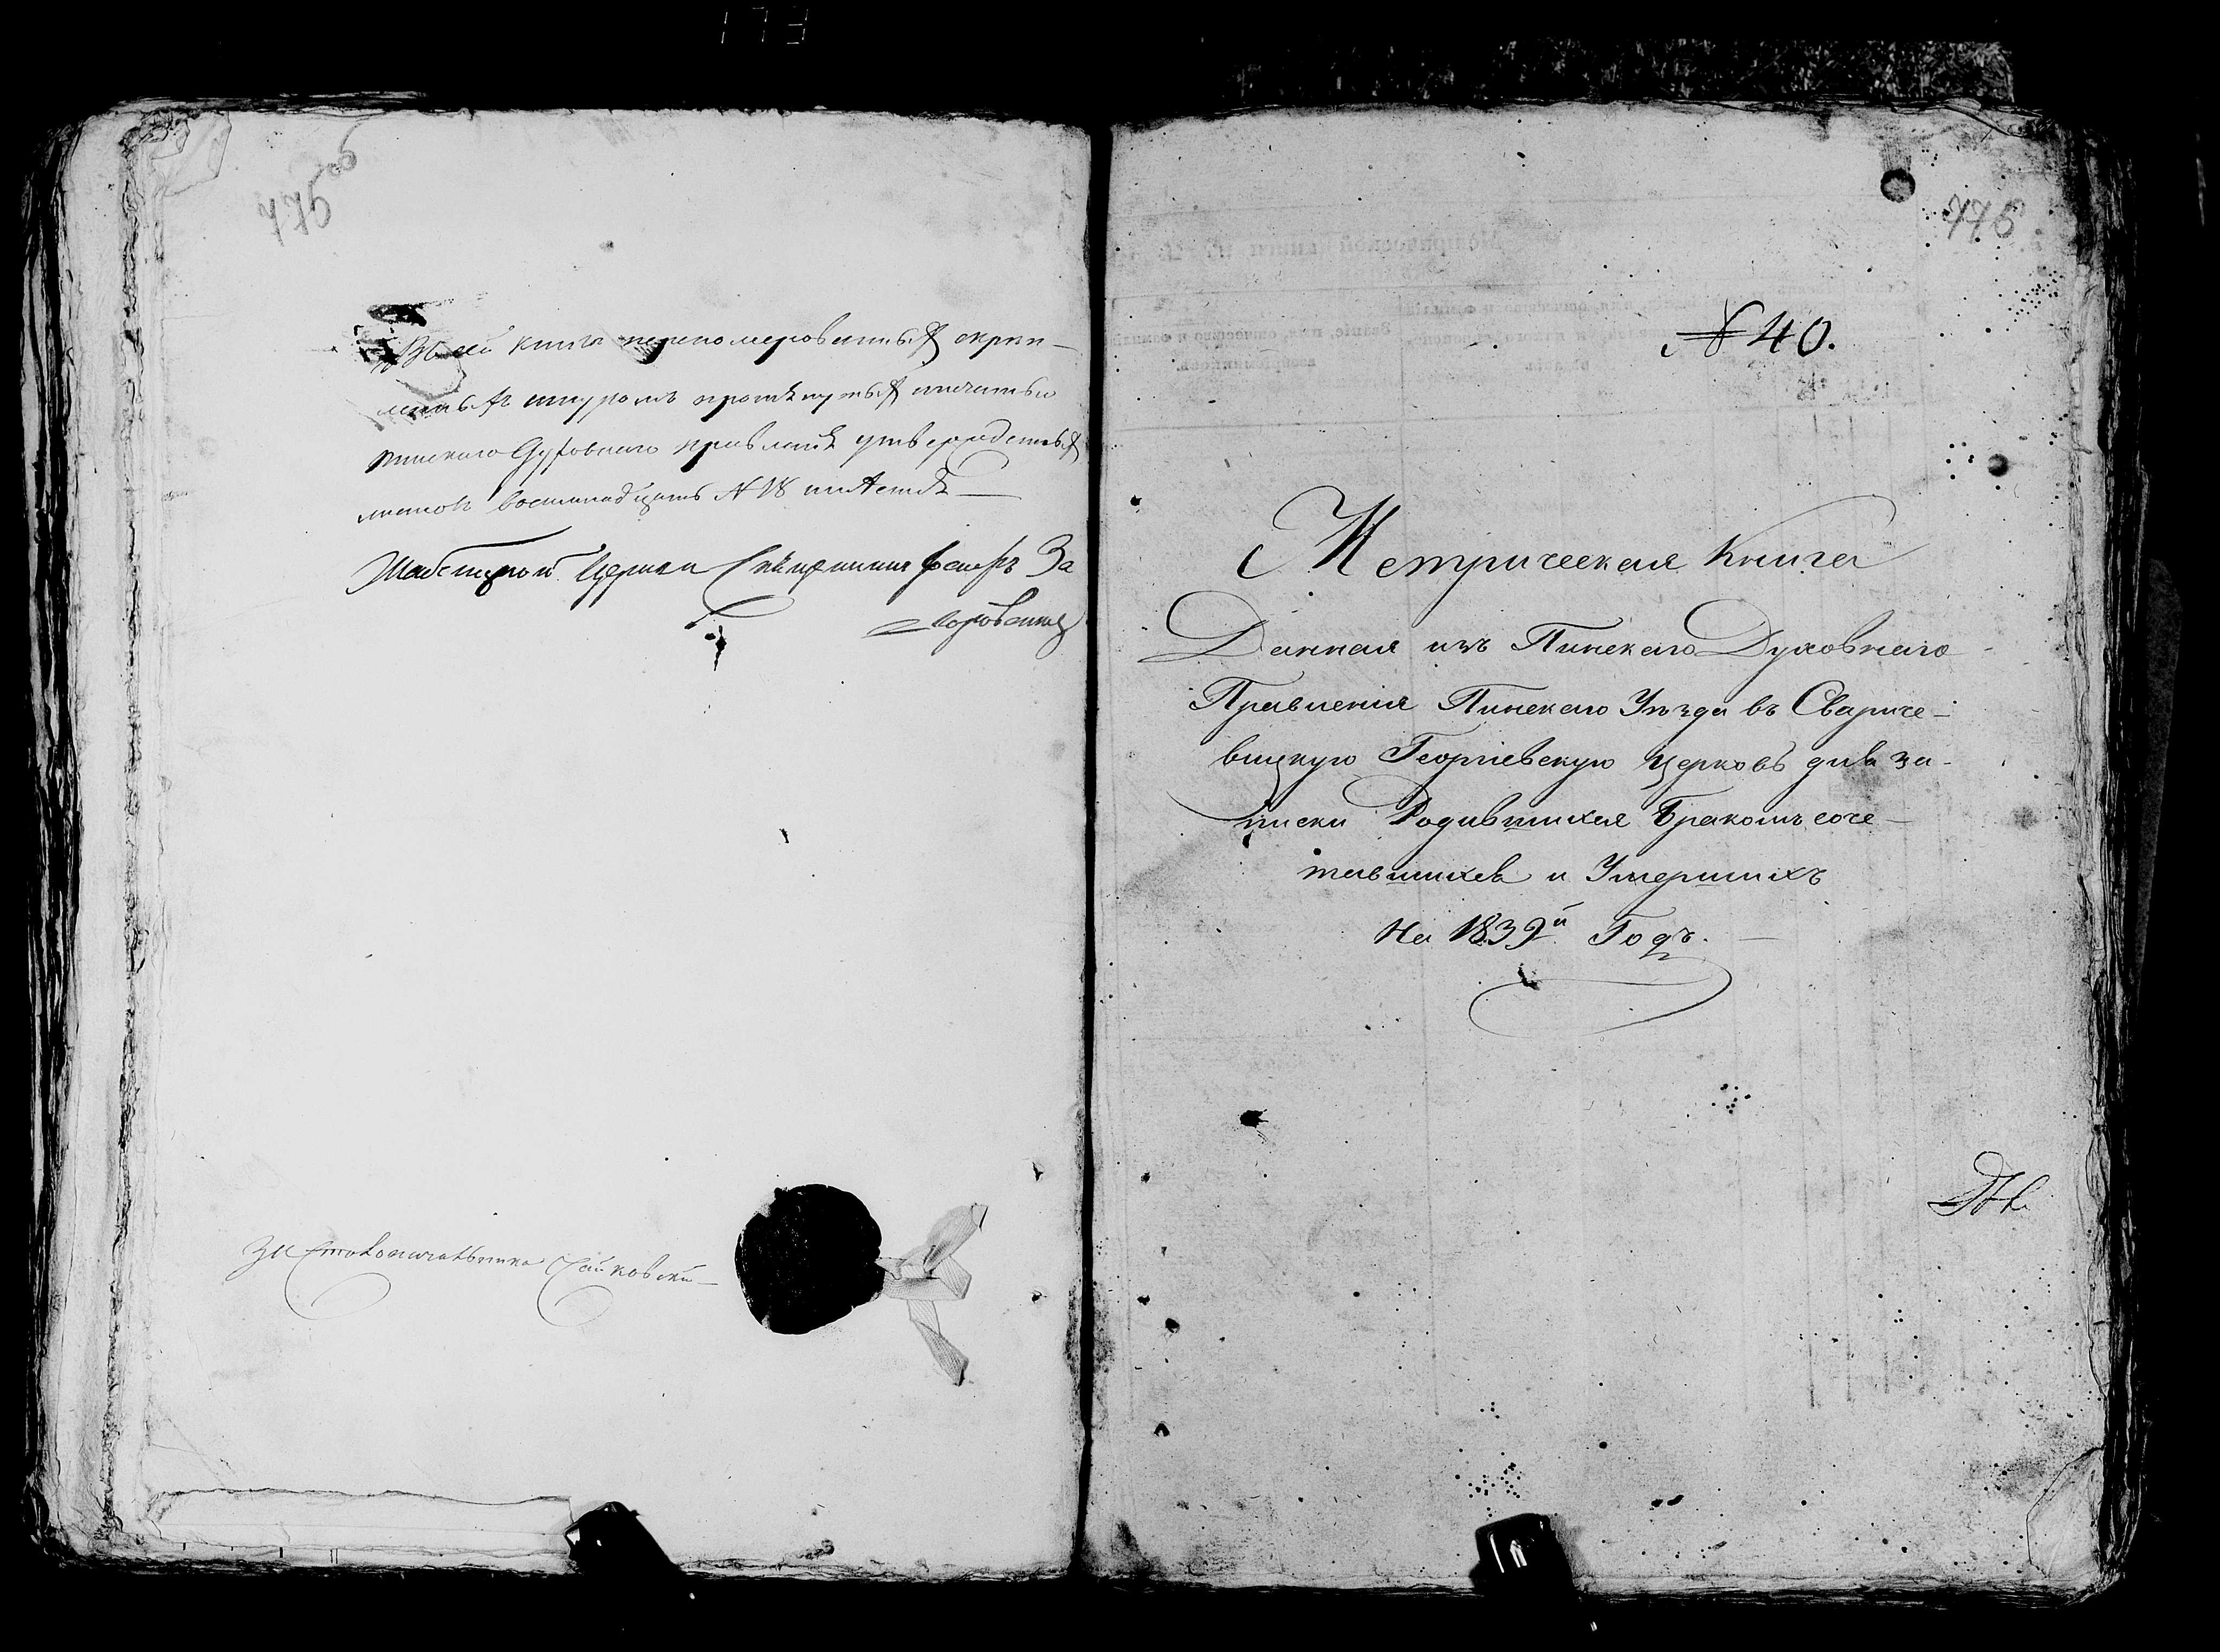 775 об
Въ сей книгѣ перенумерованныхъ скрѣп-
ленныхъ шнуромъ протянутыхъ печатью
Пинскаго Духовнаго правленія утвержденныхъ
листовъ восемнадцать N 18
Церкви Священникъ За
Столоначальника Чайковскій
776
№ 40.
Метрическая Книга
Данная изъ Пинскаго Духовнаго
Правленія Пинскаго Уѣзда въ Свариче-
вицкую Георгіевскую Церковь для за-
писки Родившихся Бракомъ соче-
тавшихся и Умершихъ
На 1839й Годъ.